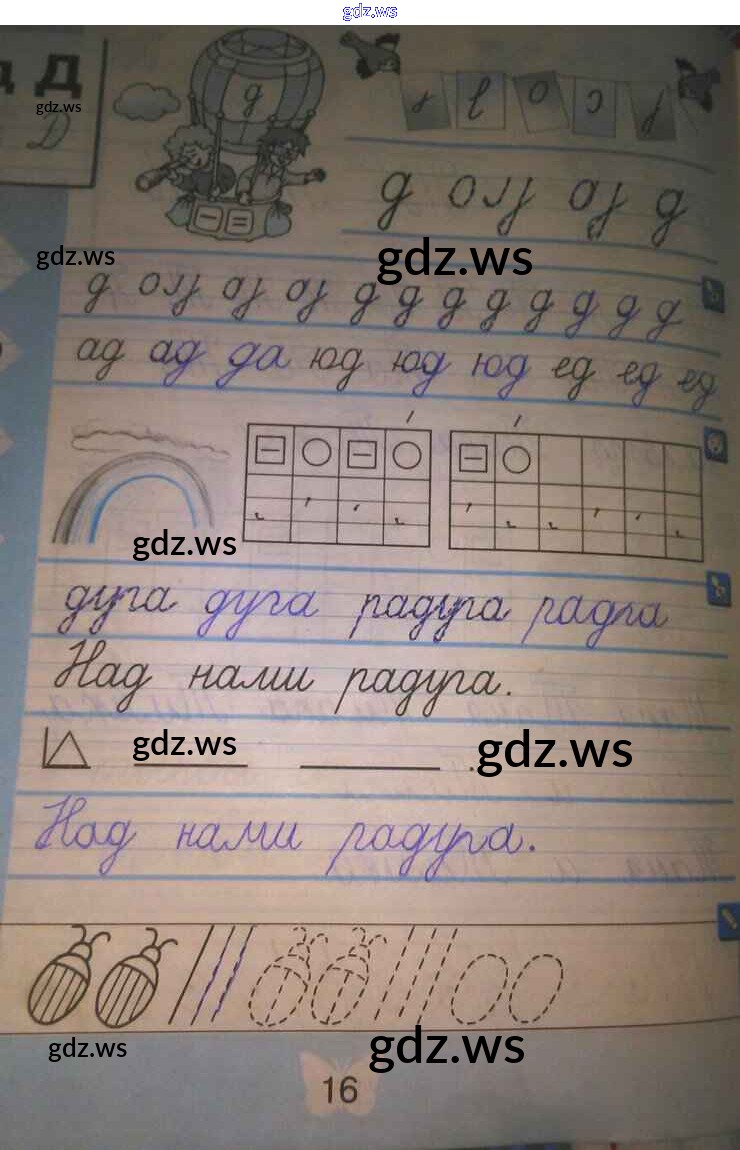 gdz.ws
Д
gdz.ws
Д
д
д
gdz.ws
gdz.ws
д д д д д д д д д
ад ад да юд юд юд ед ед ед
gdz.ws
дуга дуга радуга радга
Над нами радуга.
gdz.ws
gdz.ws
Над нами радуга.
gdz.ws
gdz.ws
16